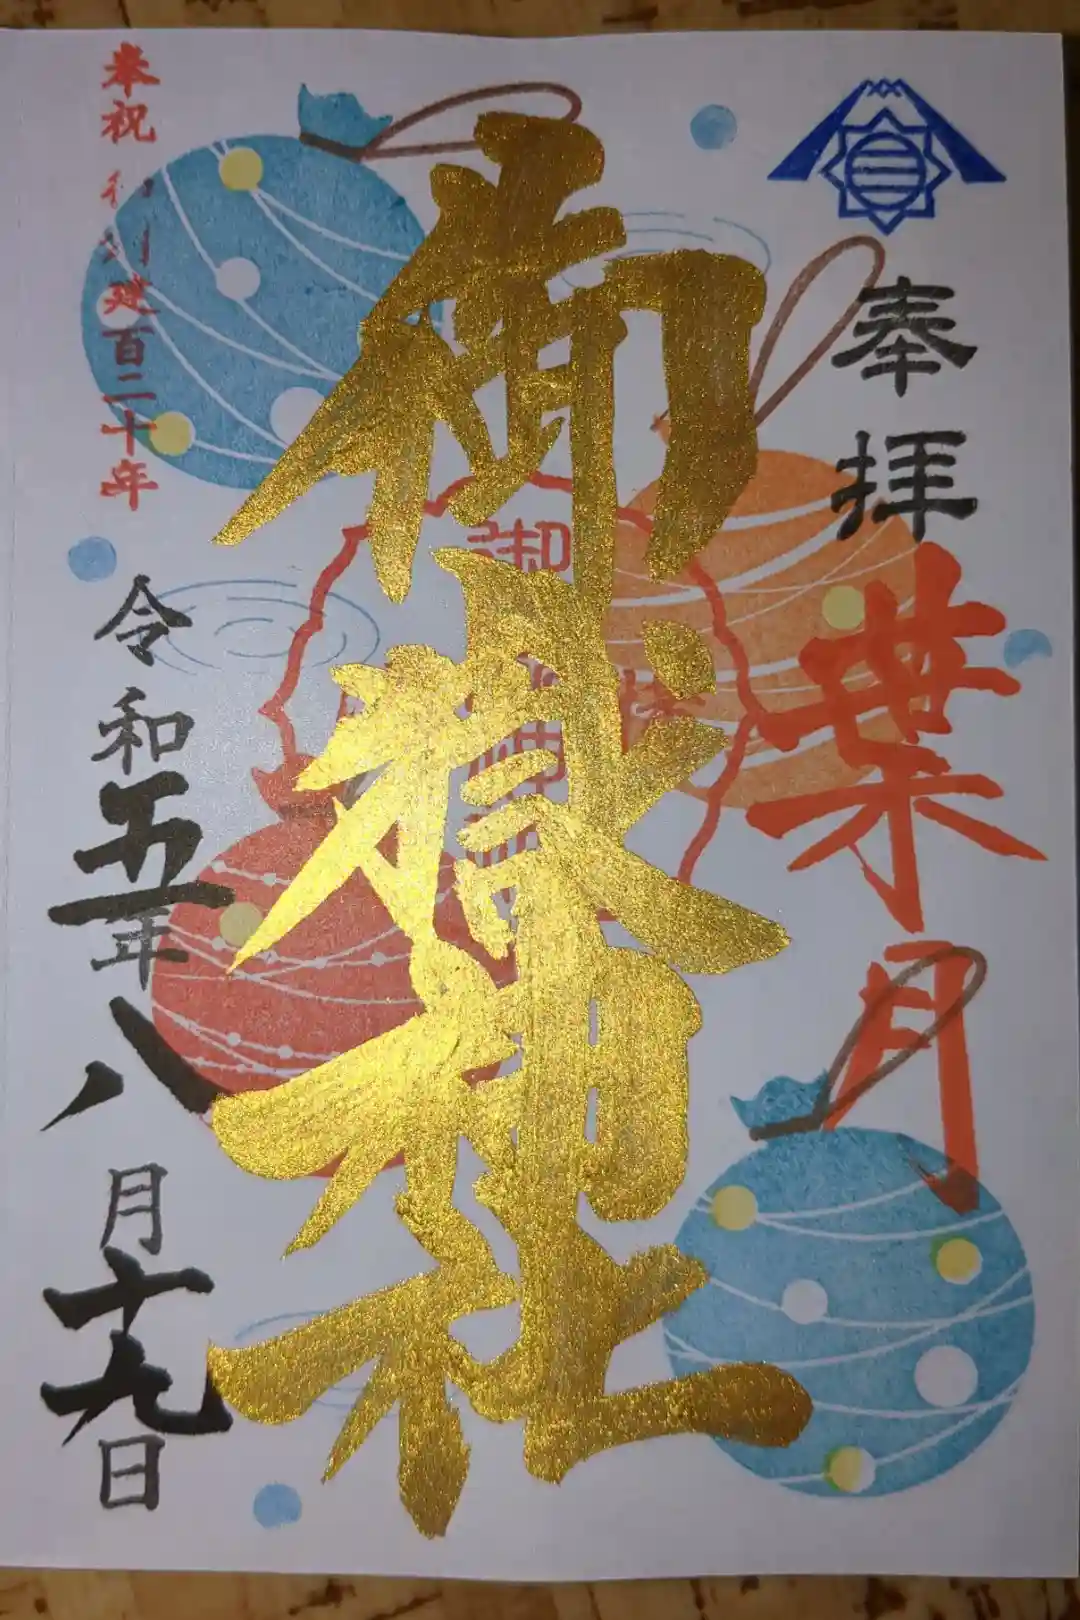 奉拝
葉月
御嶽神社
奉祝 御創建百二十年
令和五年八月十九日